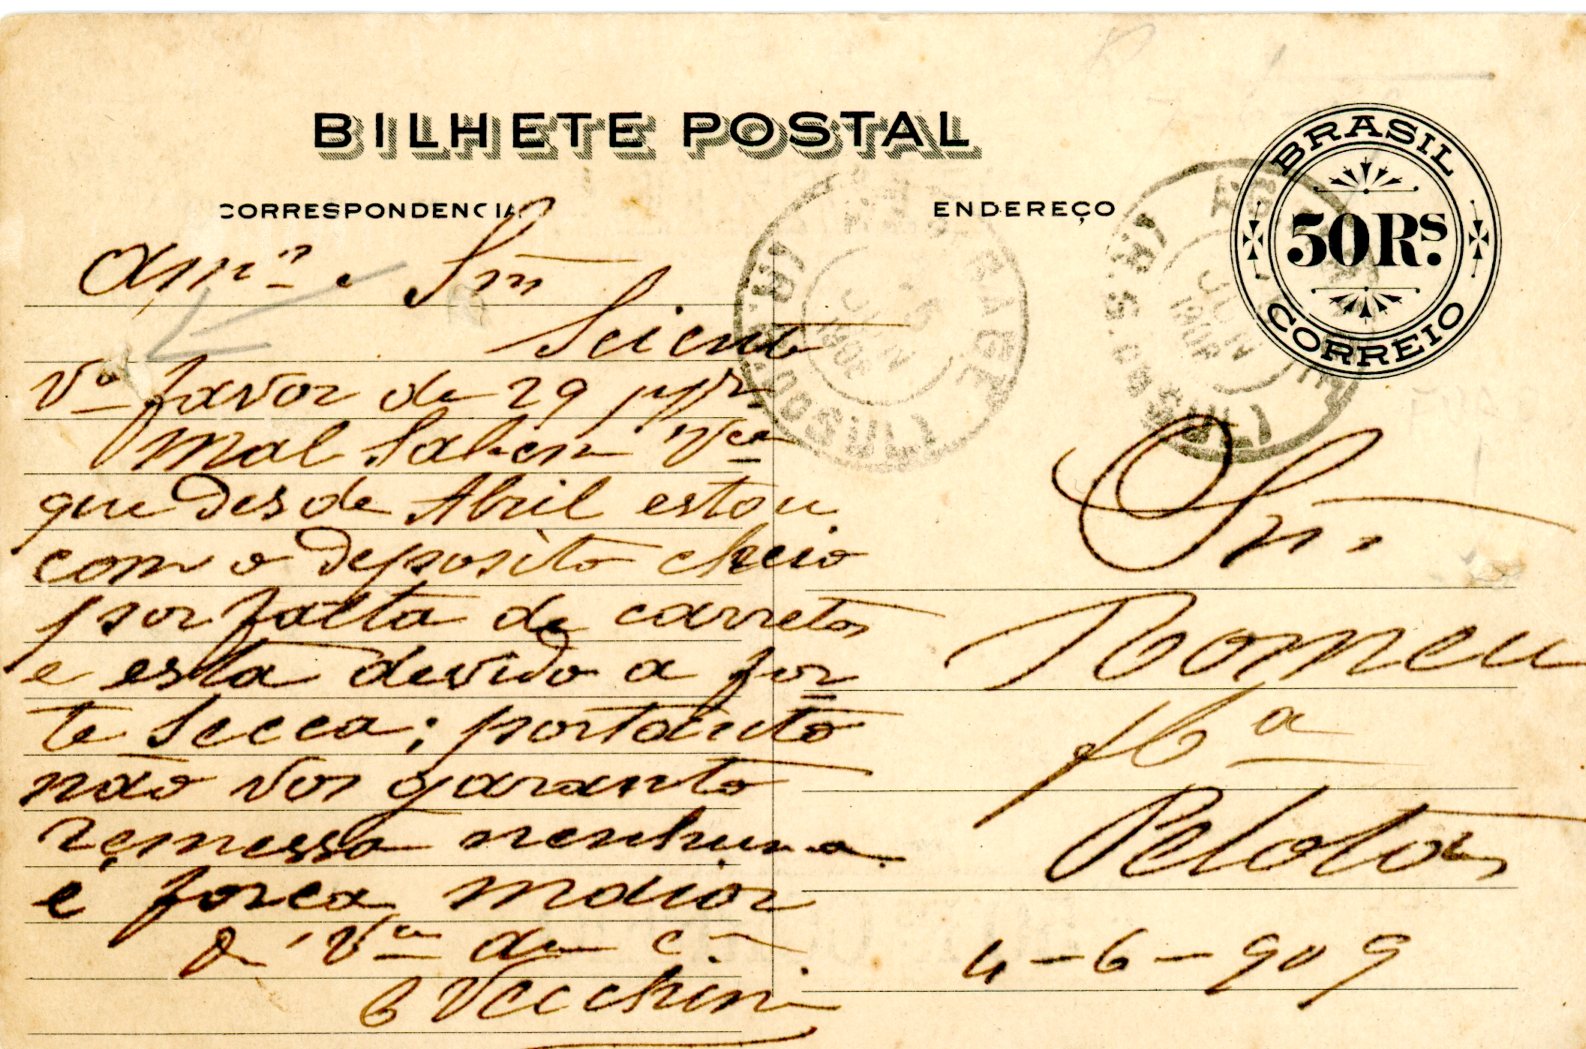 BILHETE POSTAL
CORRESPONDENCIA
ENDEREÇO
BRASIL
50 Rs.
CORREIO
JUN
JUN
Amº e Snr
Scient
Vª favor de 29
Mal sabem Vces
que desde Abril estou
com o deposito cheio
por falta de carretos
e esta devido a for
te secca; portanto
não vos garanto
remessa nenhuma
é força maior
De Vces
Vecchini
Snr.
Romeu
&
Cª
Pelotas
4-6-909